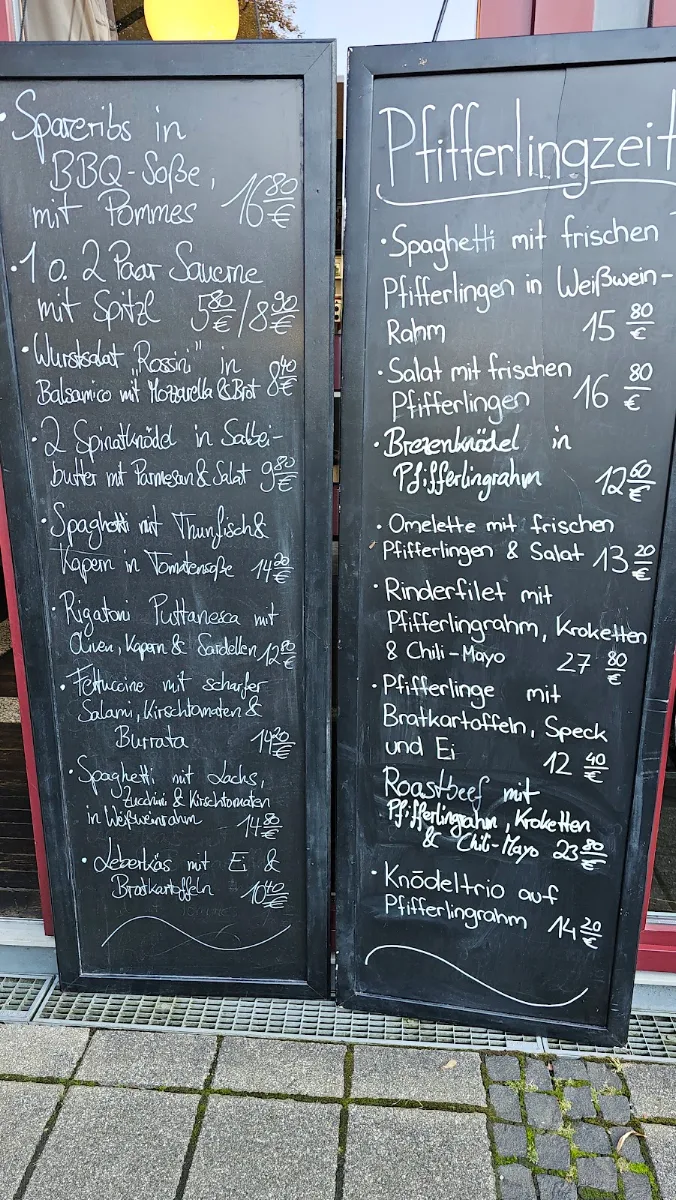 • Spareribs in
BBQ-Soße,
mit Pommes 16 80/€
• 1 o. 2 Paar Saucrne
mit Spitzl 5 80/€ / 8 90/€
• Wurstsalat „Rossini" in
Balsamico mit Mozzarella & Brot 8 40/€
• 2 Spinatknödel in Salbei-
butter mit Parmesan & Salat 9 80/€
• Spaghetti mit Thunfisch &
Kapern in Tomatensoße 14 20/€
• Rigatoni Puttanesca mit
Oliven, Kapern & Sardellen 12 80/€
• Fettuccine mit scharfer
Salami, Kirschtomaten &
Burrata 14 20/€
• Spaghetti mit Lachs,
Zucchini & Kirschtomaten
in Weißweinrahm 14 80/€
• Leberkäs mit Ei &
Bratkartoffeln 10 40/€
Pfifferlingzeit
• Spaghetti mit frischen
Pfifferlingen in Weißwein-
Rahm 15 80/€
• Salat mit frischen
Pfifferlingen 16 80/€
• Brezenknödel in
Pfifferlingrahm 12 60/€
• Omelette mit frischen
Pfifferlingen & Salat 13 20/€
• Rinderfilet mit
Pfifferlingrahm, Kroketten
& Chili-Mayo 27 80/€
• Pfifferlinge mit
Bratkartoffeln, Speck
und Ei 12 40/€
Roastbeef mit
Pfifferlingrahm, Kroketten
& Chili-Mayo 23 80/€
• Knödeltrio auf
Pfifferlingrahm 14 20/€